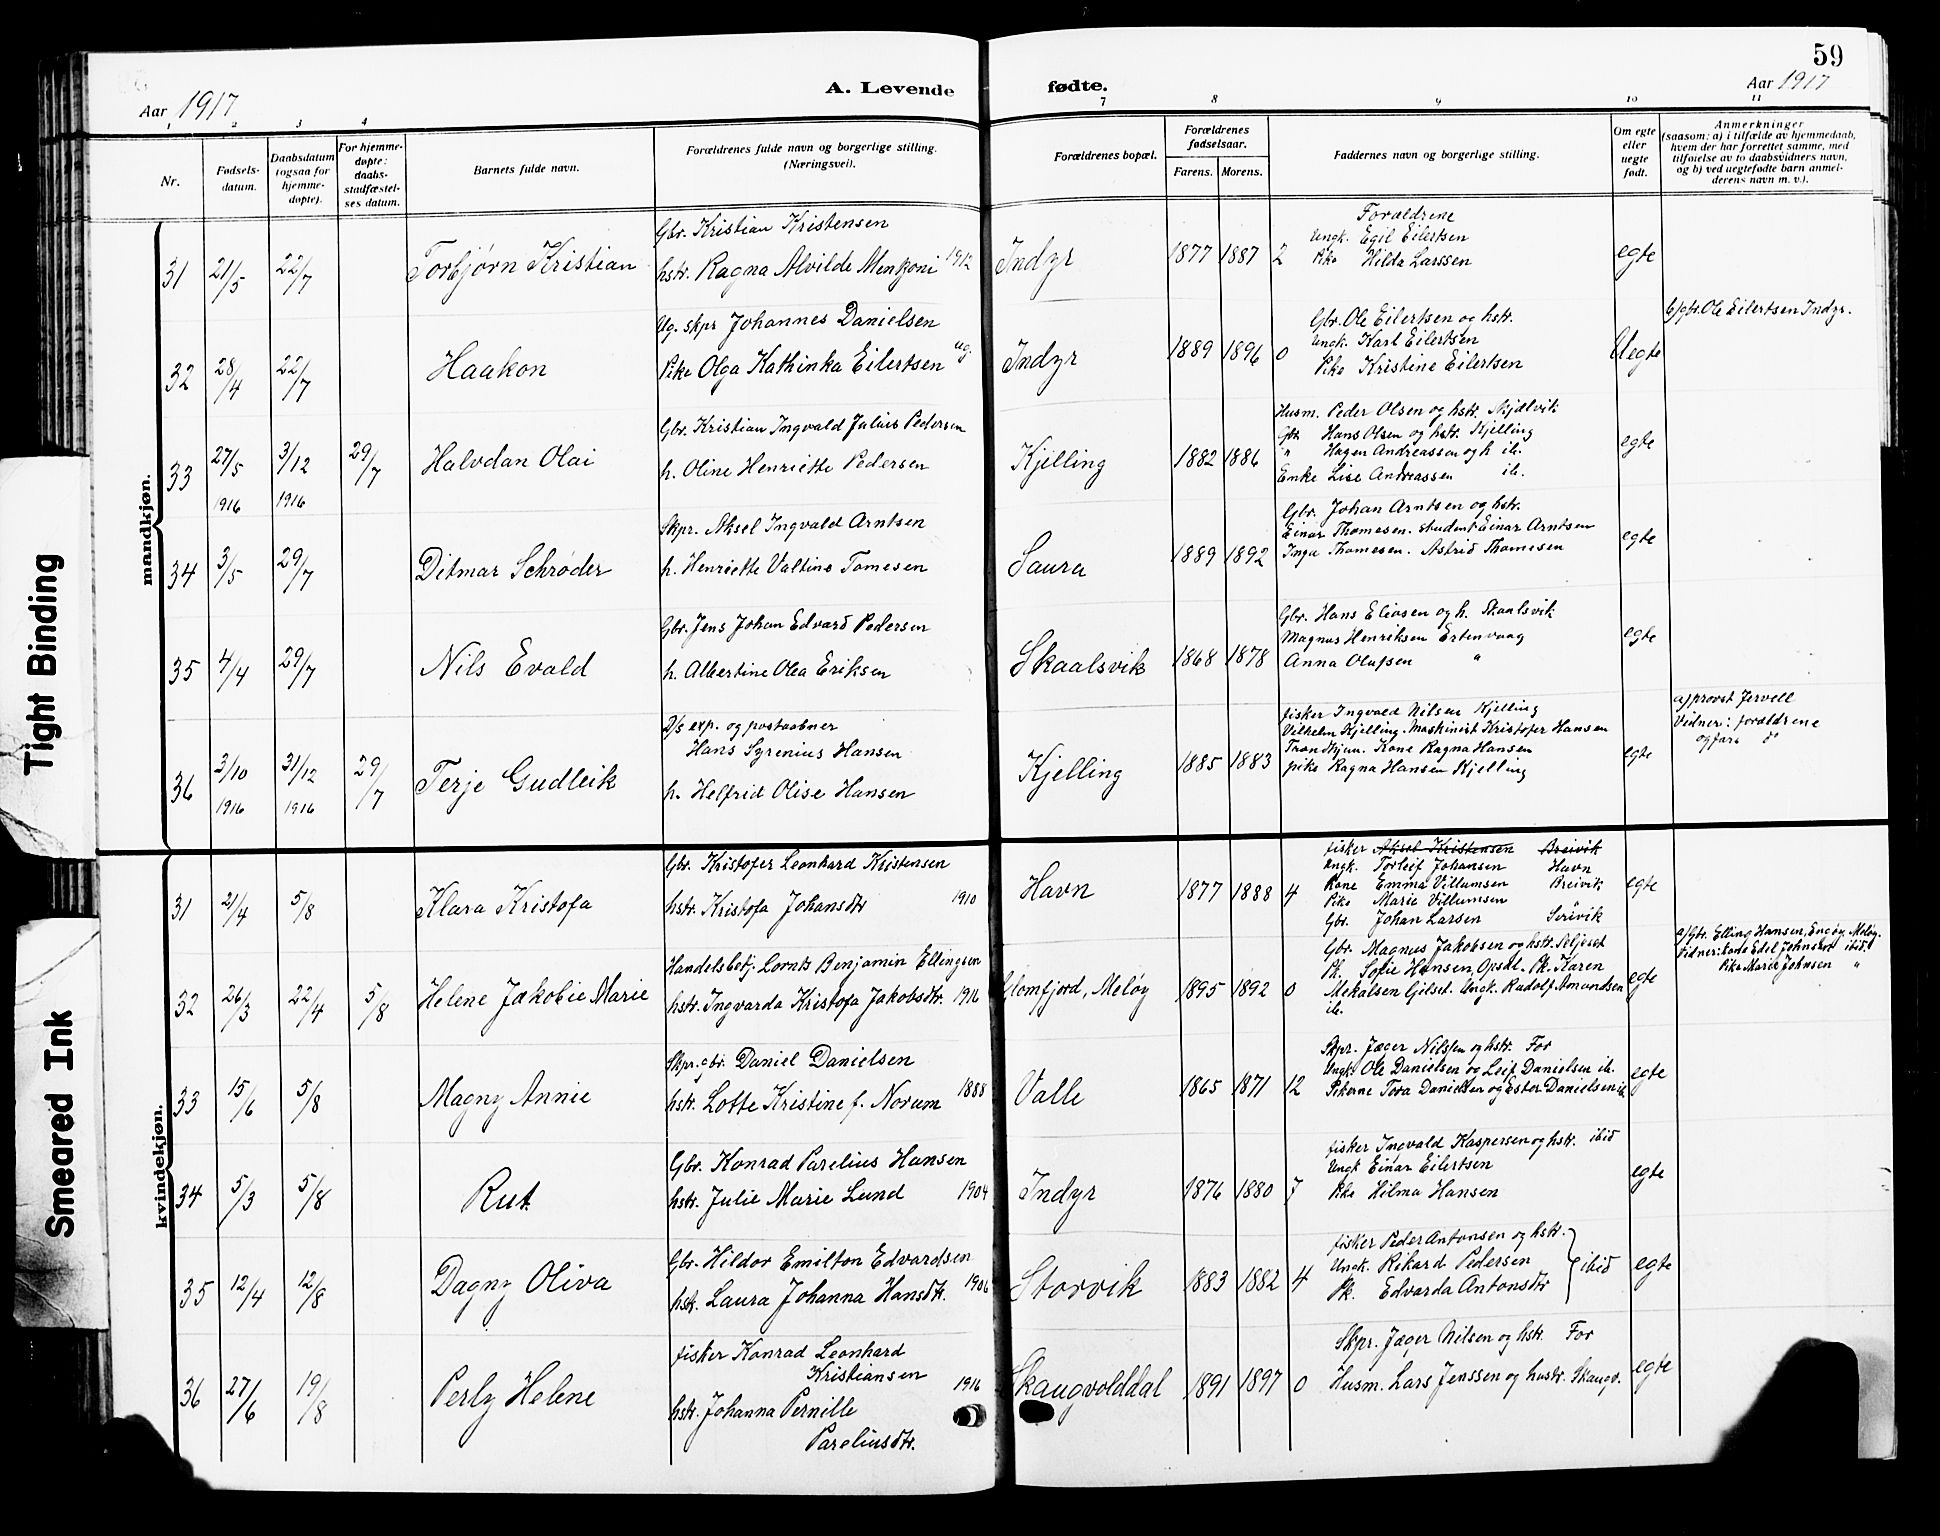 59
Aar 1917
A. Levende fødte.
Aar 1917
1 2 3 4 7 8 9 10 11
Nr.
Fødsels-
datum.
Daabsdatum
(ogsaa for
hjemme-
døpte).
For hjemme-
døpte:
daabs-
stadfæstel-
ses datum.
Barnets fulde navn.
Forældrenes fulde navn og borgerlige stilling.
(Næringsvei).
Forældrenes bopæl.
Forældrenes
fødselsaar.
Farens. Morens.
Faddernes navn og borgerlige stilling.
Om egte
eller
uegte
født.
Anmerkninger
(saasom: a) i tilfælde av hjemmedaab,
hvem der har forrettet samme, med
tilføielse av to daabsvidners navn,
og b) ved uegtefødte barn anmel-
derens navn m. v.).
mandkjøn.
31 21/5 22/7 Torbjørn Kristian
Gbr. Kristian Kristensen
hstr. Ragna Alvilde Menkzoni 1912
Indyr 1877 1887 2
Forældrene
Ungk. Egil Eilertsen
Pike Hilda Larssen
egte
32 28/4 22/7 Haakon
Ug. skpr Johannes Danielsen
Pike Olga Kathinka Eilertsen ug.
Indyr 1889 1896 0
Gbr. Ole Eilertsen og hstr.
Ungk. Karl Eilertsen
Pike Kristine Eilertsen
Uegte
b/gbr. Ole Eilertsen Indyr.
33 27/5 1916 3/12 1916 29/7 Halvdan Olai
Gbr. Kristian Ingvald Julius Pedersen
h. Oline Henriette Pedersen
Kjelling 1882 1886
Husm. Peder Olsen og hstr. Mjælvik
Gbr. Hans Olsen og hstr. Kjelling
" Hagen Andreassen og h ib.
Enke Lise Andreassen ib.
egte
34 3/5 29/7 Ditmar Schrøder
Skpr. Aksel Ingvald Arntsen
h. Henriette Valtine Tomesen
Saura 1889 1892
Gbr. Johan Arntsen og hstr.
Einar Thomesen. student Einar Arntsen
Inga Thomesen. Astrid Thomesen
egte
35 4/4 29/7 Nils Evald
Gbr. Jens Johan Edvard Pedersen
h. Albertine Olea Eriksen
Skaalsvik 1868 1878
Gbr. Hans Eliasen og h. Skaalsvik
Magnus Henriksen Ertenvaag
Anna Olufsen "
egte
36 3/10 1916 31/12 1916 29/7 Terje Gudleik
D/s exp. og postaabner
Hans Syrenius Hansen
h. Helfrid Olise Hansen
Kjelling 1885 1883
fisker Ingvald Nilsen Kjelling
Vilhelm Kjelling. Maskinist Kristofer Hansen
Trondhjem. Kone Ragna Hansen
pike Ragna Hansen Kjelling
egte
a/provst Jervell
Vidner: forældrene
kvindekjøn.
31 21/4 5/8 Klara Kristofa
Gbr. Kristofer Leonhard Kristensen
hstr. Kristofa Johansdtr 1910
Havn 1877 1888 4
fisker Aksel Kristensen Breivik
Ungk. Torleif Johansen Havn
Kone Emma Villumsen Breivik
Pike Marie Villumsen
Gbr. Johan Larsen Sørvik
egte
32 26/3 22/4 5/8 Helene Jakobie Marie
Handelsbetj. Lornts Benjamin Ellingsen
hstr. Ingvarda Kristofa Jakobsdtr. 1916
Glomfjord, Meløy 1895 1892 0
Gbr. Magnus Jakobsen og hstr. Seljeset
Pk. Sofie Hansen, Opsdl. Pk. Karen
Mekalsen Gilset. Ungk. Rudolf Amundsen
ib.
egte
a/Gbr. Elling Hansen, Enggøy Meløy.
Vidner: kone Edel Johnsen ibid
Pike Marie Johnsen "
33 15/6 5/8 Magny Annie
Skpr. gbr. Daniel Danielsen
hstr. Lotte Kristine f. Norum 1888
Valle 1865 1871 12
Skpr. Jæger Nilssen og hstr. For
Ungk. Ole Danielsen og Leif Danielsen ib.
Pikerne Tora Danielsen og Ester Danielsen ib.
egte
34 5/3 5/8 Rut
Gbr. Konrad Parelius Hansen
hstr. Julie Marie Lund 1904
Indyr 1876 1880 7
fisker Ingvald Kaspersen og hstr. ibid
Ungk Einar Eilertsen
Pike Hilma Hansen
egte
35 12/4 12/8 Dagny Oliva
Gbr. Hildor Emilton Edvardsen
hstr. Laura Johanna Hansdtr. 1906
Storvik 1883 1882 4
fisker Peder Antonsen og hstr.
Ungk. Rikard Pedersen
Pk. Edvarda Antonsdtr
ibid
egte
36 27/6 19/8 Perly Helene
fisker Konrad Leonhard
Kristiansen
hstr. Johanna Pernille 1916
Pareliusdtr.
Skaugvolddal 1891 1897 0
Skpr. Jæger Nilsen og hstr. For
Husm. Lars Jenssen og hustr. Skaugv.
egte
Tight Binding
Smeared Ink